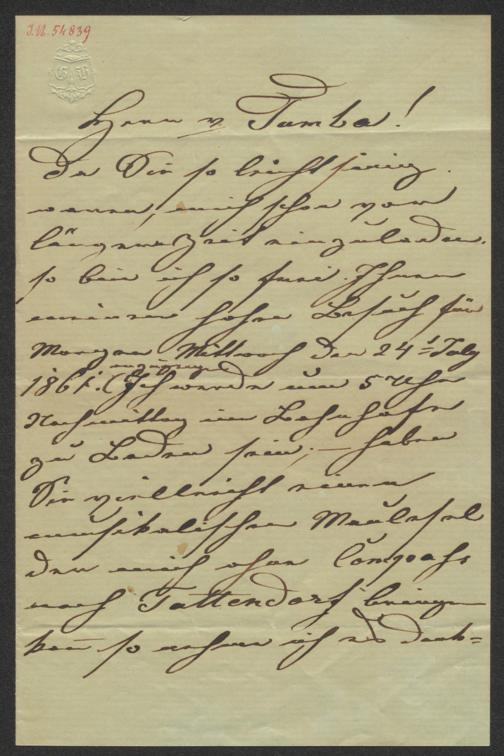 I.N. 54839
Herrn v Tumba!
Da Sie so leichtsinnig
waren, mich schon vor
längerer Zeit einzuladen.
so bin ich so frei. Ihnen
meinen hohen Besuch für
Morgen Mittwoch den 24t July
1861. anzuzeigen
(Ich werde um 5 Uhr
Nachmittag im Bahnhofe
zu Baden sein; — haben
Sie vielleicht einen
musikalischen Maulesel
der mich ohne Compass
nach Tattendorf bringen
kann so nehme ich es dank=